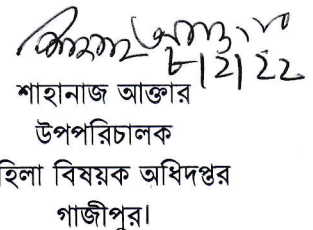 ৮|2|22
শাহানাজ আক্তার
উপপরিচালক
হিলা বিষয়ক অধিদপ্তর
গাজীপুর।